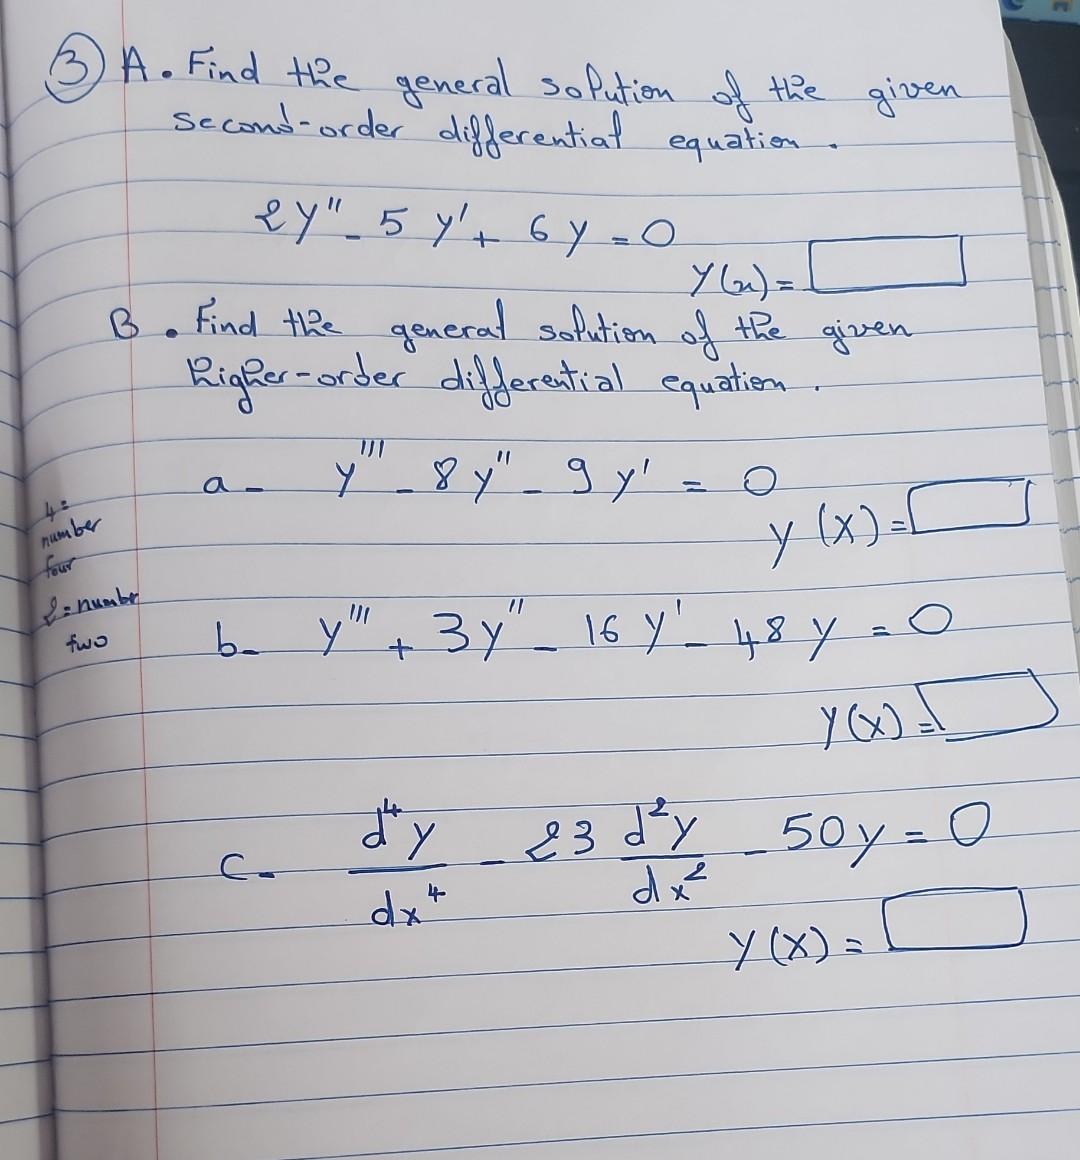 ③ A. Find the general solution of the given
second-order differential equation.
2y" - 5y' + 6y = 0
y(x) =
B. Find the general solution of the given
higher-order differential equation.
a- y''' - 8y" - 9y' = 0
y(x) =
4 =
number
four
2 = number
two
b- y''' + 3y" - 16y' - 48y = 0
y(x) =
c- d⁴y/dx⁴ - 23 d²y/dx² - 50y = 0
y(x) =